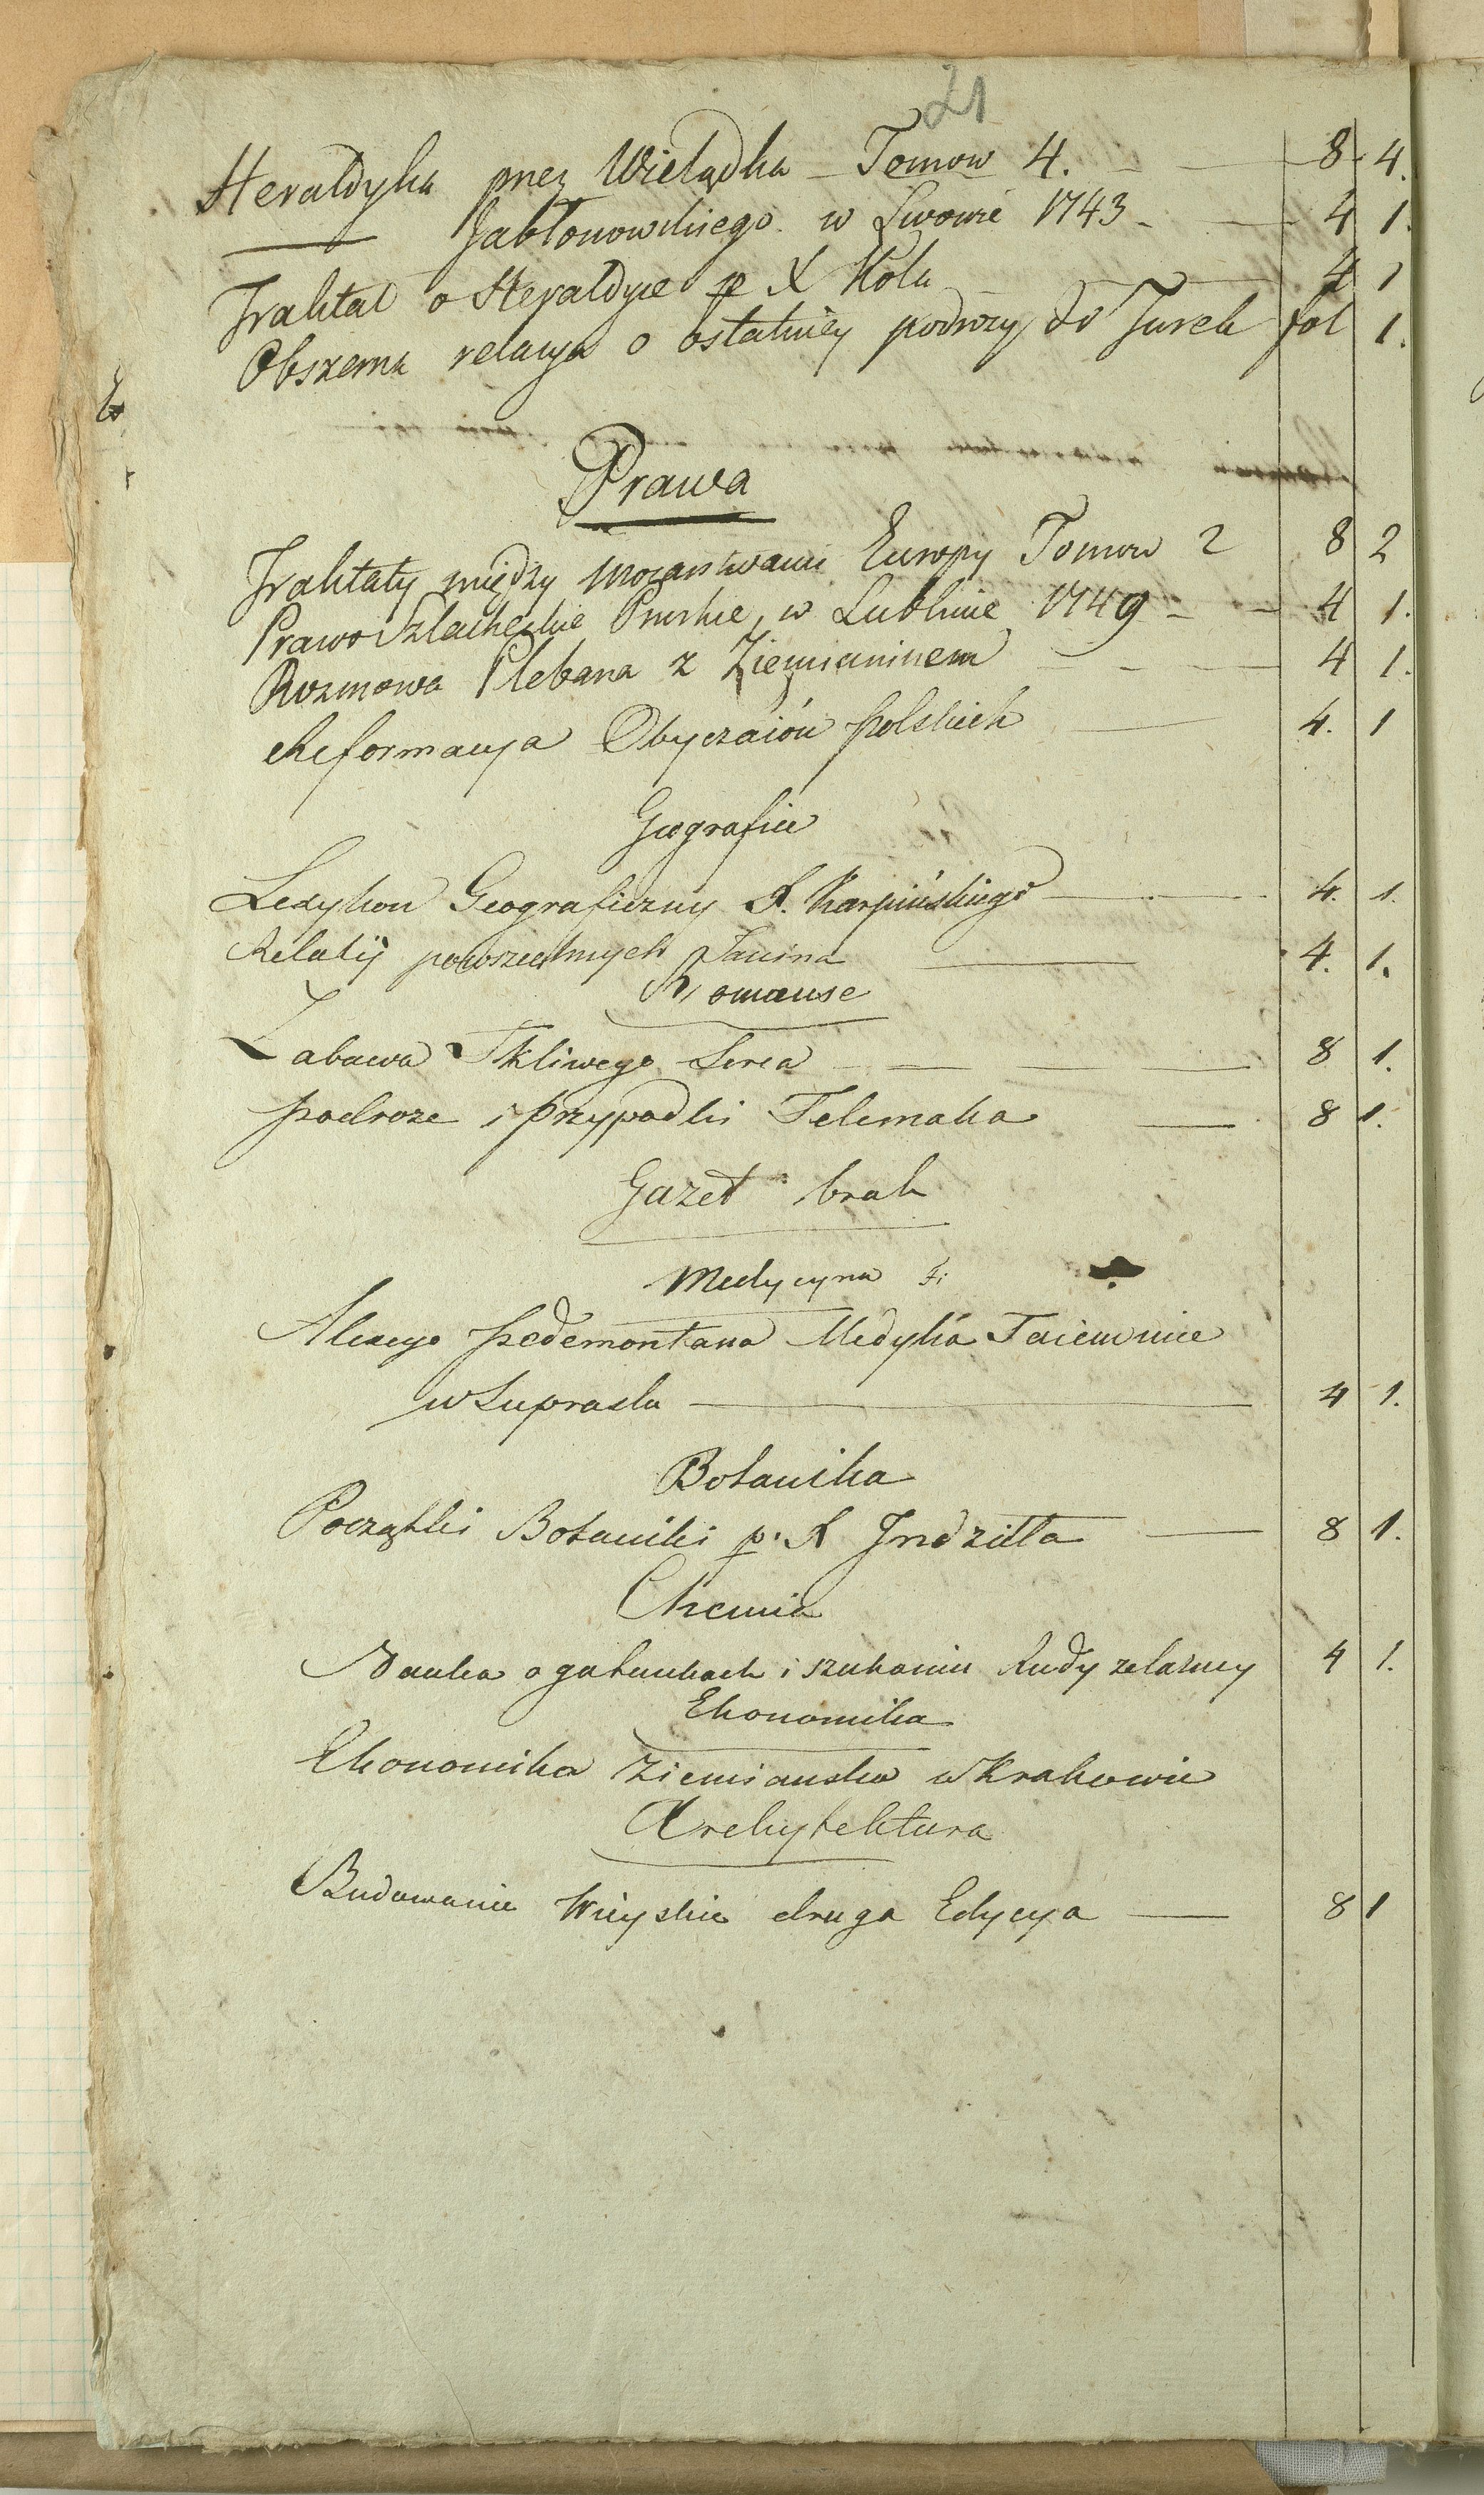 21
Heraldyka przez Wielądka – Tomow 4. – 8. 4.
— Jabłonowskiego w Lwowie 1743 – 4 1.
Traktat o Heraldyce p X Kola – 4 1
Obszerna relacya o ostatniey podrozy do Turek fol 1.
Prawa
Traktaty między mocarstwami Europy Tomow 2 8 2
Prawo Szlacheckie Pruskie, w Lublinie 1749 – 4 1.
Rozmowa Plebana z Ziemianinem – 4 1.
Reformacya Obyczaiów polskich — 4. 1
Geografia
Lexykon Geograficzny X. Karpińskiego — 4. 1.
Relatij powszechnych — 4. 1.
Romanse
Zabawa Tkliwego Serca — 8 1.
podroze i przypadki Telemaka — 8 1.
Gazet brak
Medycyna
Alexego pedemontana Medyka Taiemnice
w Supraslu — 4 1.
Botanika
Początki Botaniki p. X Jndziłła — 8 1.
Chemia
Nauka o gatunkach i szukaniu Rudy zelazney 4 1.
Ekonomika
Ekonomika Ziemianska w Krakowie
Architektura
Budowanie Wieyskie druga Edycya — 8 1